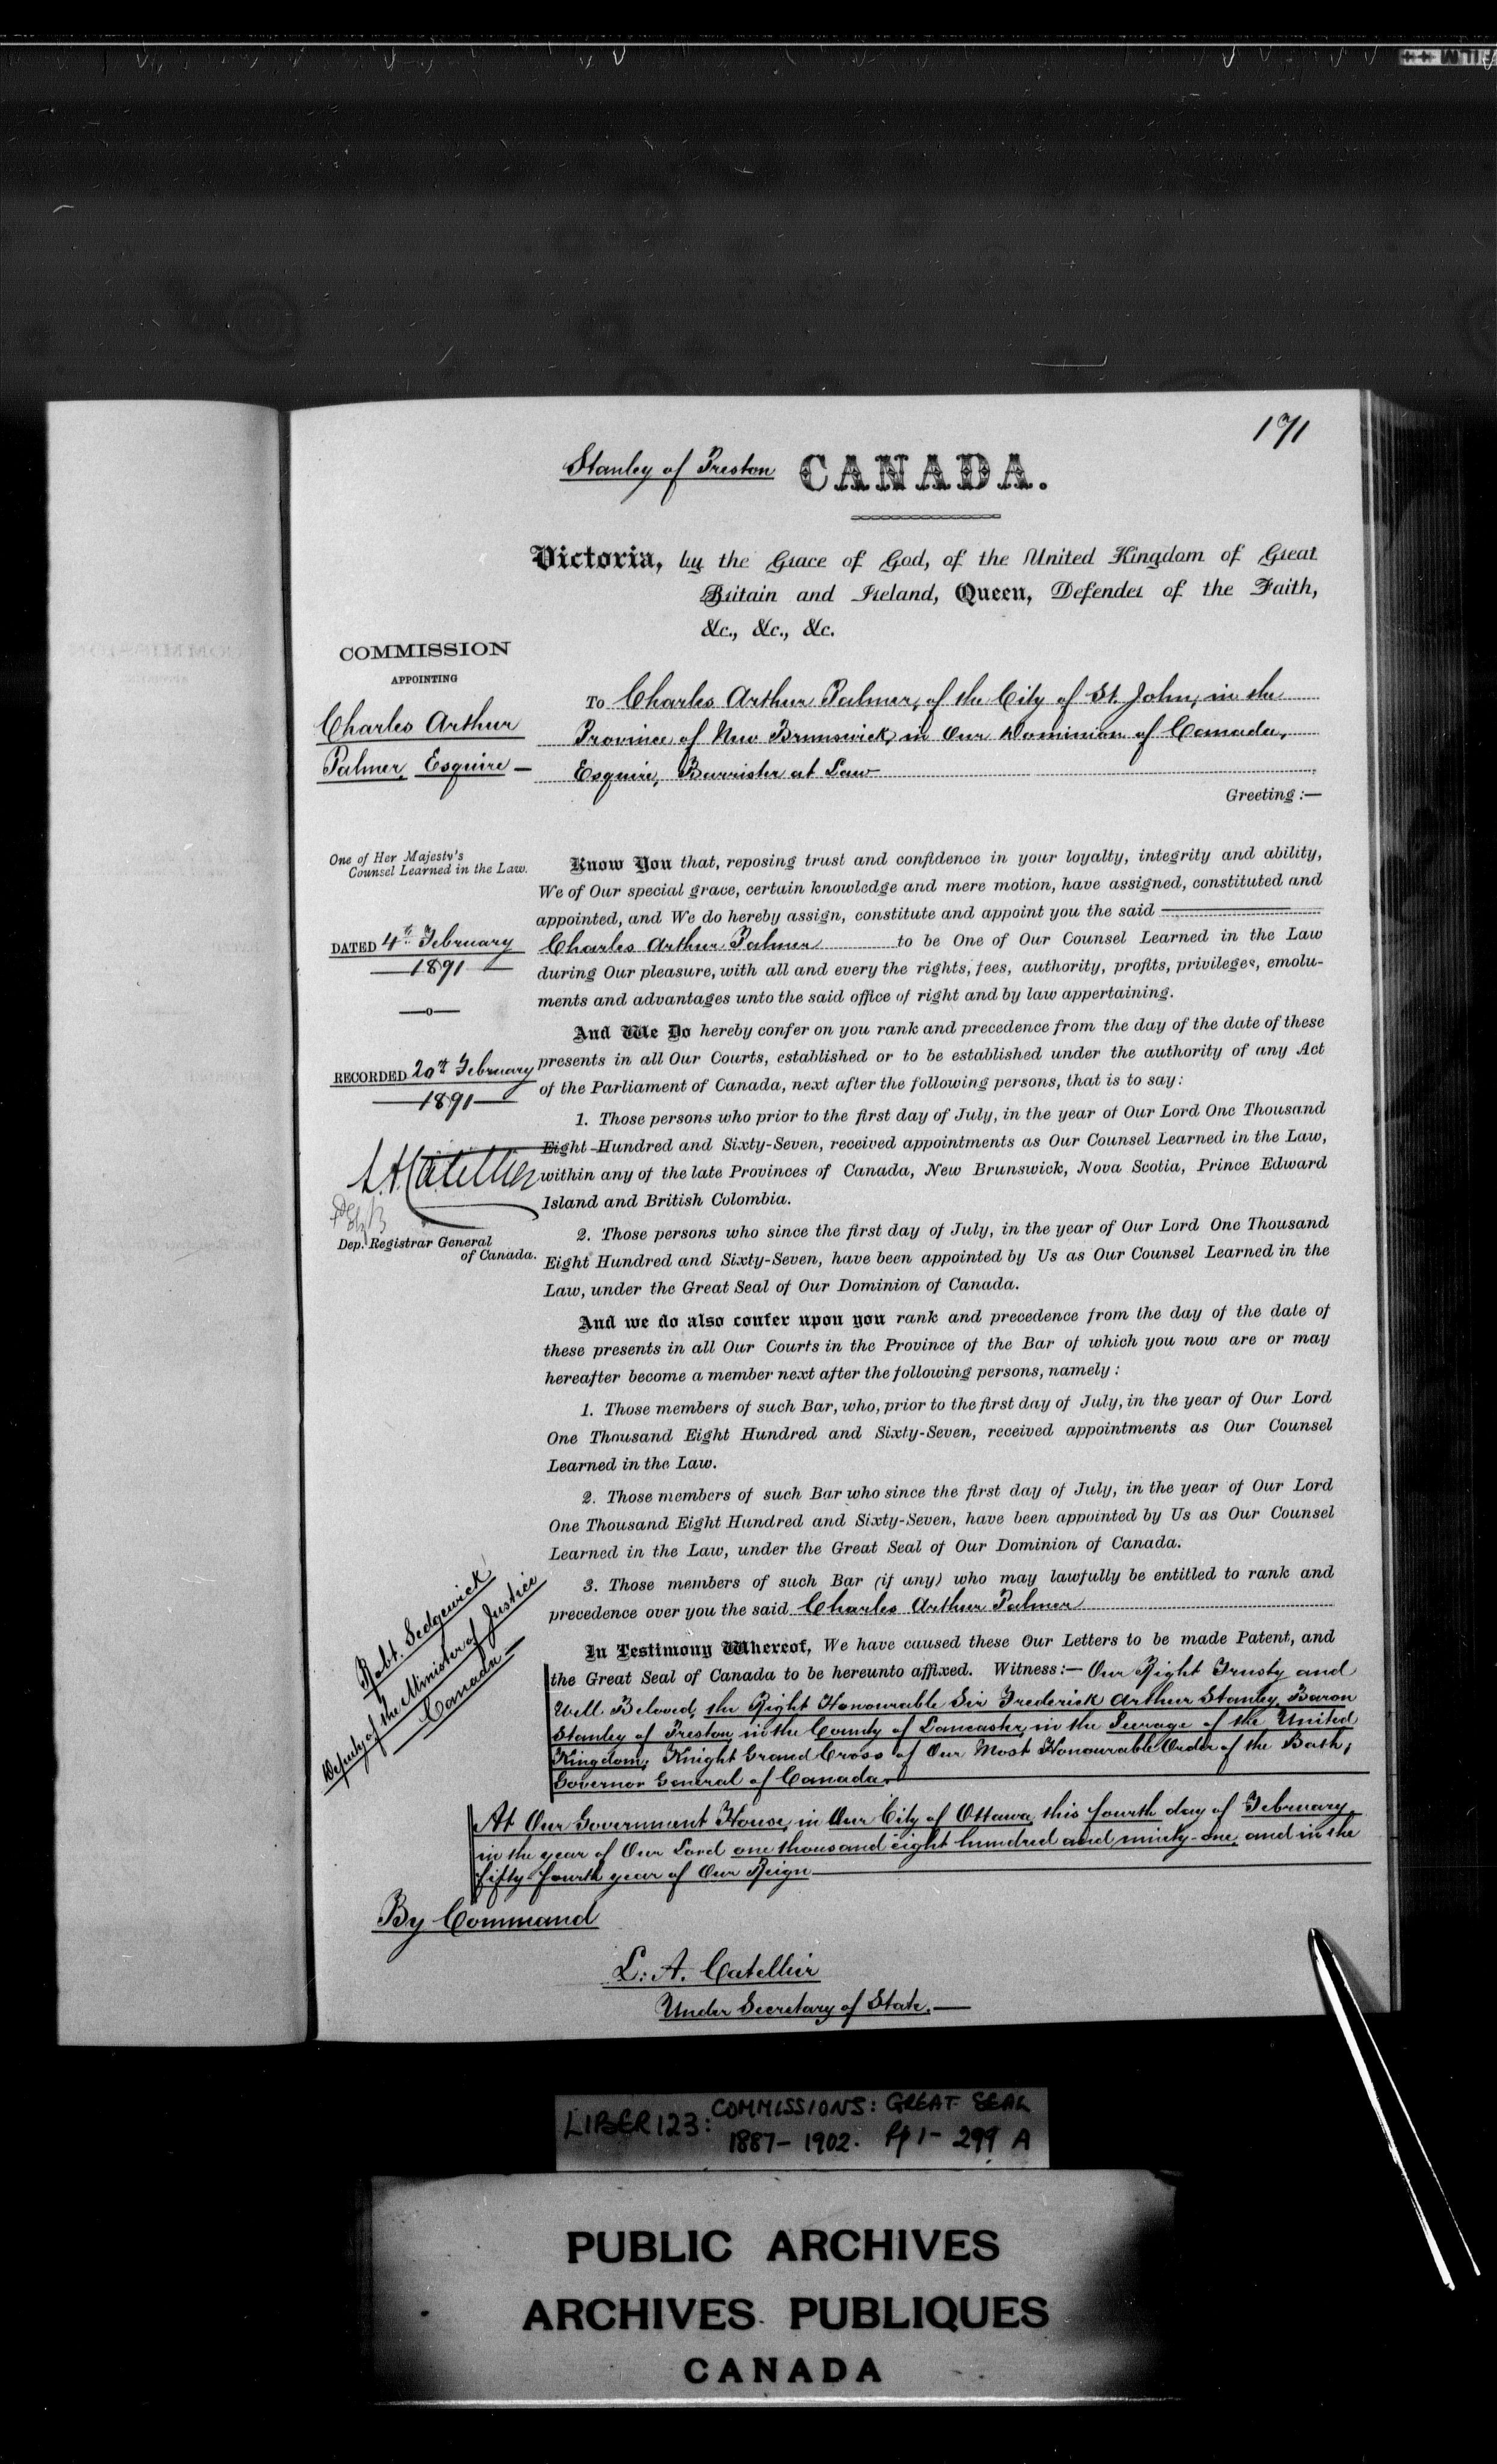 171
Stanley of Preston CANADA.
Victoria, by the Grace of God, of the United Kingdom of Great
Britain and Ireland, Queen, Defender of the Faith,
&c., &c., &c.
COMMISSION
APPOINTING
Charles Arthur
Palmer, Esquire —
To Charles Arthur Palmer, of the City of St. John, in the
Province of New Brunswick, in Our Dominion of Canada,
Esquire, Barrister at Law
Greeting :—
One of Her Majesty's
Counsel Learned in the Law.
DATED 4th February
1891
—o—
RECORDED 20th February
1891
L. A. Catellier
Dep. Registrar General
of Canada.
Know You that, reposing trust and confidence in your loyalty, integrity and ability,
We of Our special grace, certain knowledge and mere motion, have assigned, constituted and
appointed, and We do hereby assign, constitute and appoint you the said
Charles Arthur Palmer to be One of Our Counsel Learned in the Law
during Our pleasure, with all and every the rights, fees, authority, profits, privileges, emolu-
ments and advantages unto the said office of right and by law appertaining.
And We Do hereby confer on you rank and precedence from the day of the date of these
presents in all Our Courts, established or to be established under the authority of any Act
of the Parliament of Canada, next after the following persons, that is to say:
1. Those persons who prior to the first day of July, in the year of Our Lord One Thousand
Eight Hundred and Sixty-Seven, received appointments as Our Counsel Learned in the Law,
within any of the late Provinces of Canada, New Brunswick, Nova Scotia, Prince Edward
Island and British Colombia.
2. Those persons who since the first day of July, in the year of Our Lord One Thousand
Eight Hundred and Sixty-Seven, have been appointed by Us as Our Counsel Learned in the
Law, under the Great Seal of Our Dominion of Canada.
And we do also confer upon you rank and precedence from the day of the date of
these presents in all Our Courts in the Province of the Bar of which you now are or may
hereafter become a member next after the following persons, namely :
1. Those members of such Bar, who, prior to the first day of July, in the year of Our Lord
One Thousand Eight Hundred and Sixty-Seven, received appointments as Our Counsel
Learned in the Law.
2. Those members of such Bar who since the first day of July, in the year of Our Lord
One Thousand Eight Hundred and Sixty-Seven, have been appointed by Us as Our Counsel
Learned in the Law, under the Great Seal of Our Dominion of Canada.
3. Those members of such Bar (if any) who may lawfully be entitled to rank and
precedence over you the said Charles Arthur Palmer
Robt. Sedgewick
Deputy of the Minister of Justice
Canada —
In Testimony Whereof, We have caused these Our Letters to be made Patent, and
the Great Seal of Canada to be hereunto affixed. Witness:— Our Right Trusty and
Well Beloved, the Right Honourable Sir Frederick Arthur Stanley, Baron
Stanley of Preston, in the County of Lancaster, in the Peerage of the United
Kingdom, Knight Grand Cross of Our Most Honourable Order of the Bath,
Governor General of Canada.
At Our Government House, in Our City of Ottawa, this fourth day of February,
in the year of Our Lord one thousand eight hundred and ninety-one, and in the
fifty fourth year of Our Reign
By Command
L. A. Catellier
Under Secretary of State. —
LIBER 123: COMMISSIONS: GREAT SEAL
1887 – 1902. Pp 1 – 299 A
PUBLIC ARCHIVES
ARCHIVES PUBLIQUES
CANADA